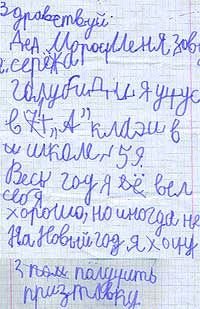 Здравствуй
Дед Мороз Меня зову
т. серёжа
голубиД и я учус
в 7 "А" класи в
школе 59.
Весь год я сё вел
себя
хорошо, но иногда не
На Новый год я хочу
получить
призтавку